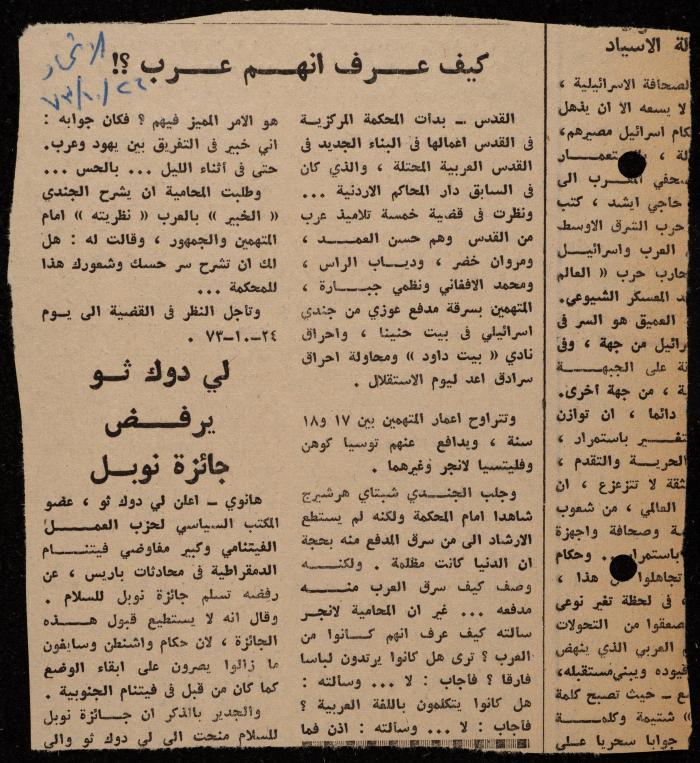 الاتحاد
٧٣/١٠/٢٦
كيف عرف انهم عرب ؟!
القدس ــ بدأت المحكمة المركزية
في القدس اعمالها في البناء الجديد في
القدس العربية المحتلة ، والذي كان
في السابق دار المحاكم الاردنية ...
ونظرت في قضية خمسة تلاميذ عرب
من القدس وهم حسن العمد ،
ومروان خضر ، ودياب الراس ،
ومحمد الافغاني ونظمي جبارة ،
المتهمين بسرقة مدفع عوزي من جندي
اسرائيلي في بيت حنينا ، واحراق
نادي « بيت داود » ومحاولة احراق
سرادق اعد ليوم الاستقلال .
وتتراوح اعمار المتهمين بين ١٧ و١٨
سنة ، ويدافع عنهم توسيا كوهن
وفليتسيا لانجر وغيرهما .
وجلب الجندي شبتاي هرشبرج
شاهدا امام المحكمة ولكنه لم يستطع
الارشاد الى من سرق المدفع منه بحجة
ان الدنيا كانت مظلمة . ولكنه
وصف كيف سرق العرب منه
مدفعه ... غير ان المحامية لانجر
سالته كيف عرف انهم كانوا من
العرب ؟ ترى هل كانوا يرتدون لباسا
فارقا ؟ فأجاب : لا ... وسألته :
هل كانوا يتكلمون باللغة العربية ؟
فأجاب : لا ... وسألته : اذن فما
هو الامر المميز فيهم ؟ فكان جوابه :
اني خبير في التفريق بين يهود وعرب.
حتى في أثناء الليل ... بالحس ...
وطلبت المحامية ان يشرح الجندي
« الخبير » بالعرب « نظريته » امام
المتهمين والجمهور ، وقالت له : هل
لك ان تشرح سر حسك وشعورك هذا
للمحكمة ...
وتأجل النظر في القضية الى يوم
٢٤ــ١٠ــ٧٣ .
لي دوك ثو
يرفض
جائزة نوبل
هانوي ــ اعلن لي دوك ثو ، عضو
المكتب السياسي لحزب العمل
الفيتنامي وكبير مفاوضي فيتنام
الدمقراطية في محادثات باريس ، عن
رفضه تسلم جائزة نوبل للسلام .
وقال انه لا يستطيع قبول هذه
الجائزة ، لان حكام واشنطن وسايغون
ما زالوا يصرون على ابقاء الوضع
كما كان من قبل في فيتنام الجنوبية .
والجدير بالذكر ان جائزة نوبل
للسلام منحت الى لي دوك ثو والى
لة الاسياد
لصحافة الاسرائيلية ،
لا يسعه الا ان يذهل
كام اسرائيل مصيرهم،
لة ،
صحفي الى
حاجي ايشد ، كتب
حرب الشرق الاوسط
العرب واسرائيل
حارب حرب « العالم
د المعسكر الشيوعي.
العميق هو السر في
رائيل من جهة ، وفي
ة على الجبهة
ة ، من جهة اخرى.
دائما ، ان توازن
تغير باستمرار ،
الحرية والتقدم ،
ثقة لا تتزعزع ، ان
العالمي ، من شعوب
ية وصحافة واجهزة
باستمرار .. وحكام
تجاهلوا هذا ،
، في لحظة تغير نوعي
صعقوا من التحولات
م العربي الذي ينهض
قيوده ويبني مستقبله،
ع ــ حيث تصبح كلمة
» شتيمة وكلمة
جوابا سحريا على